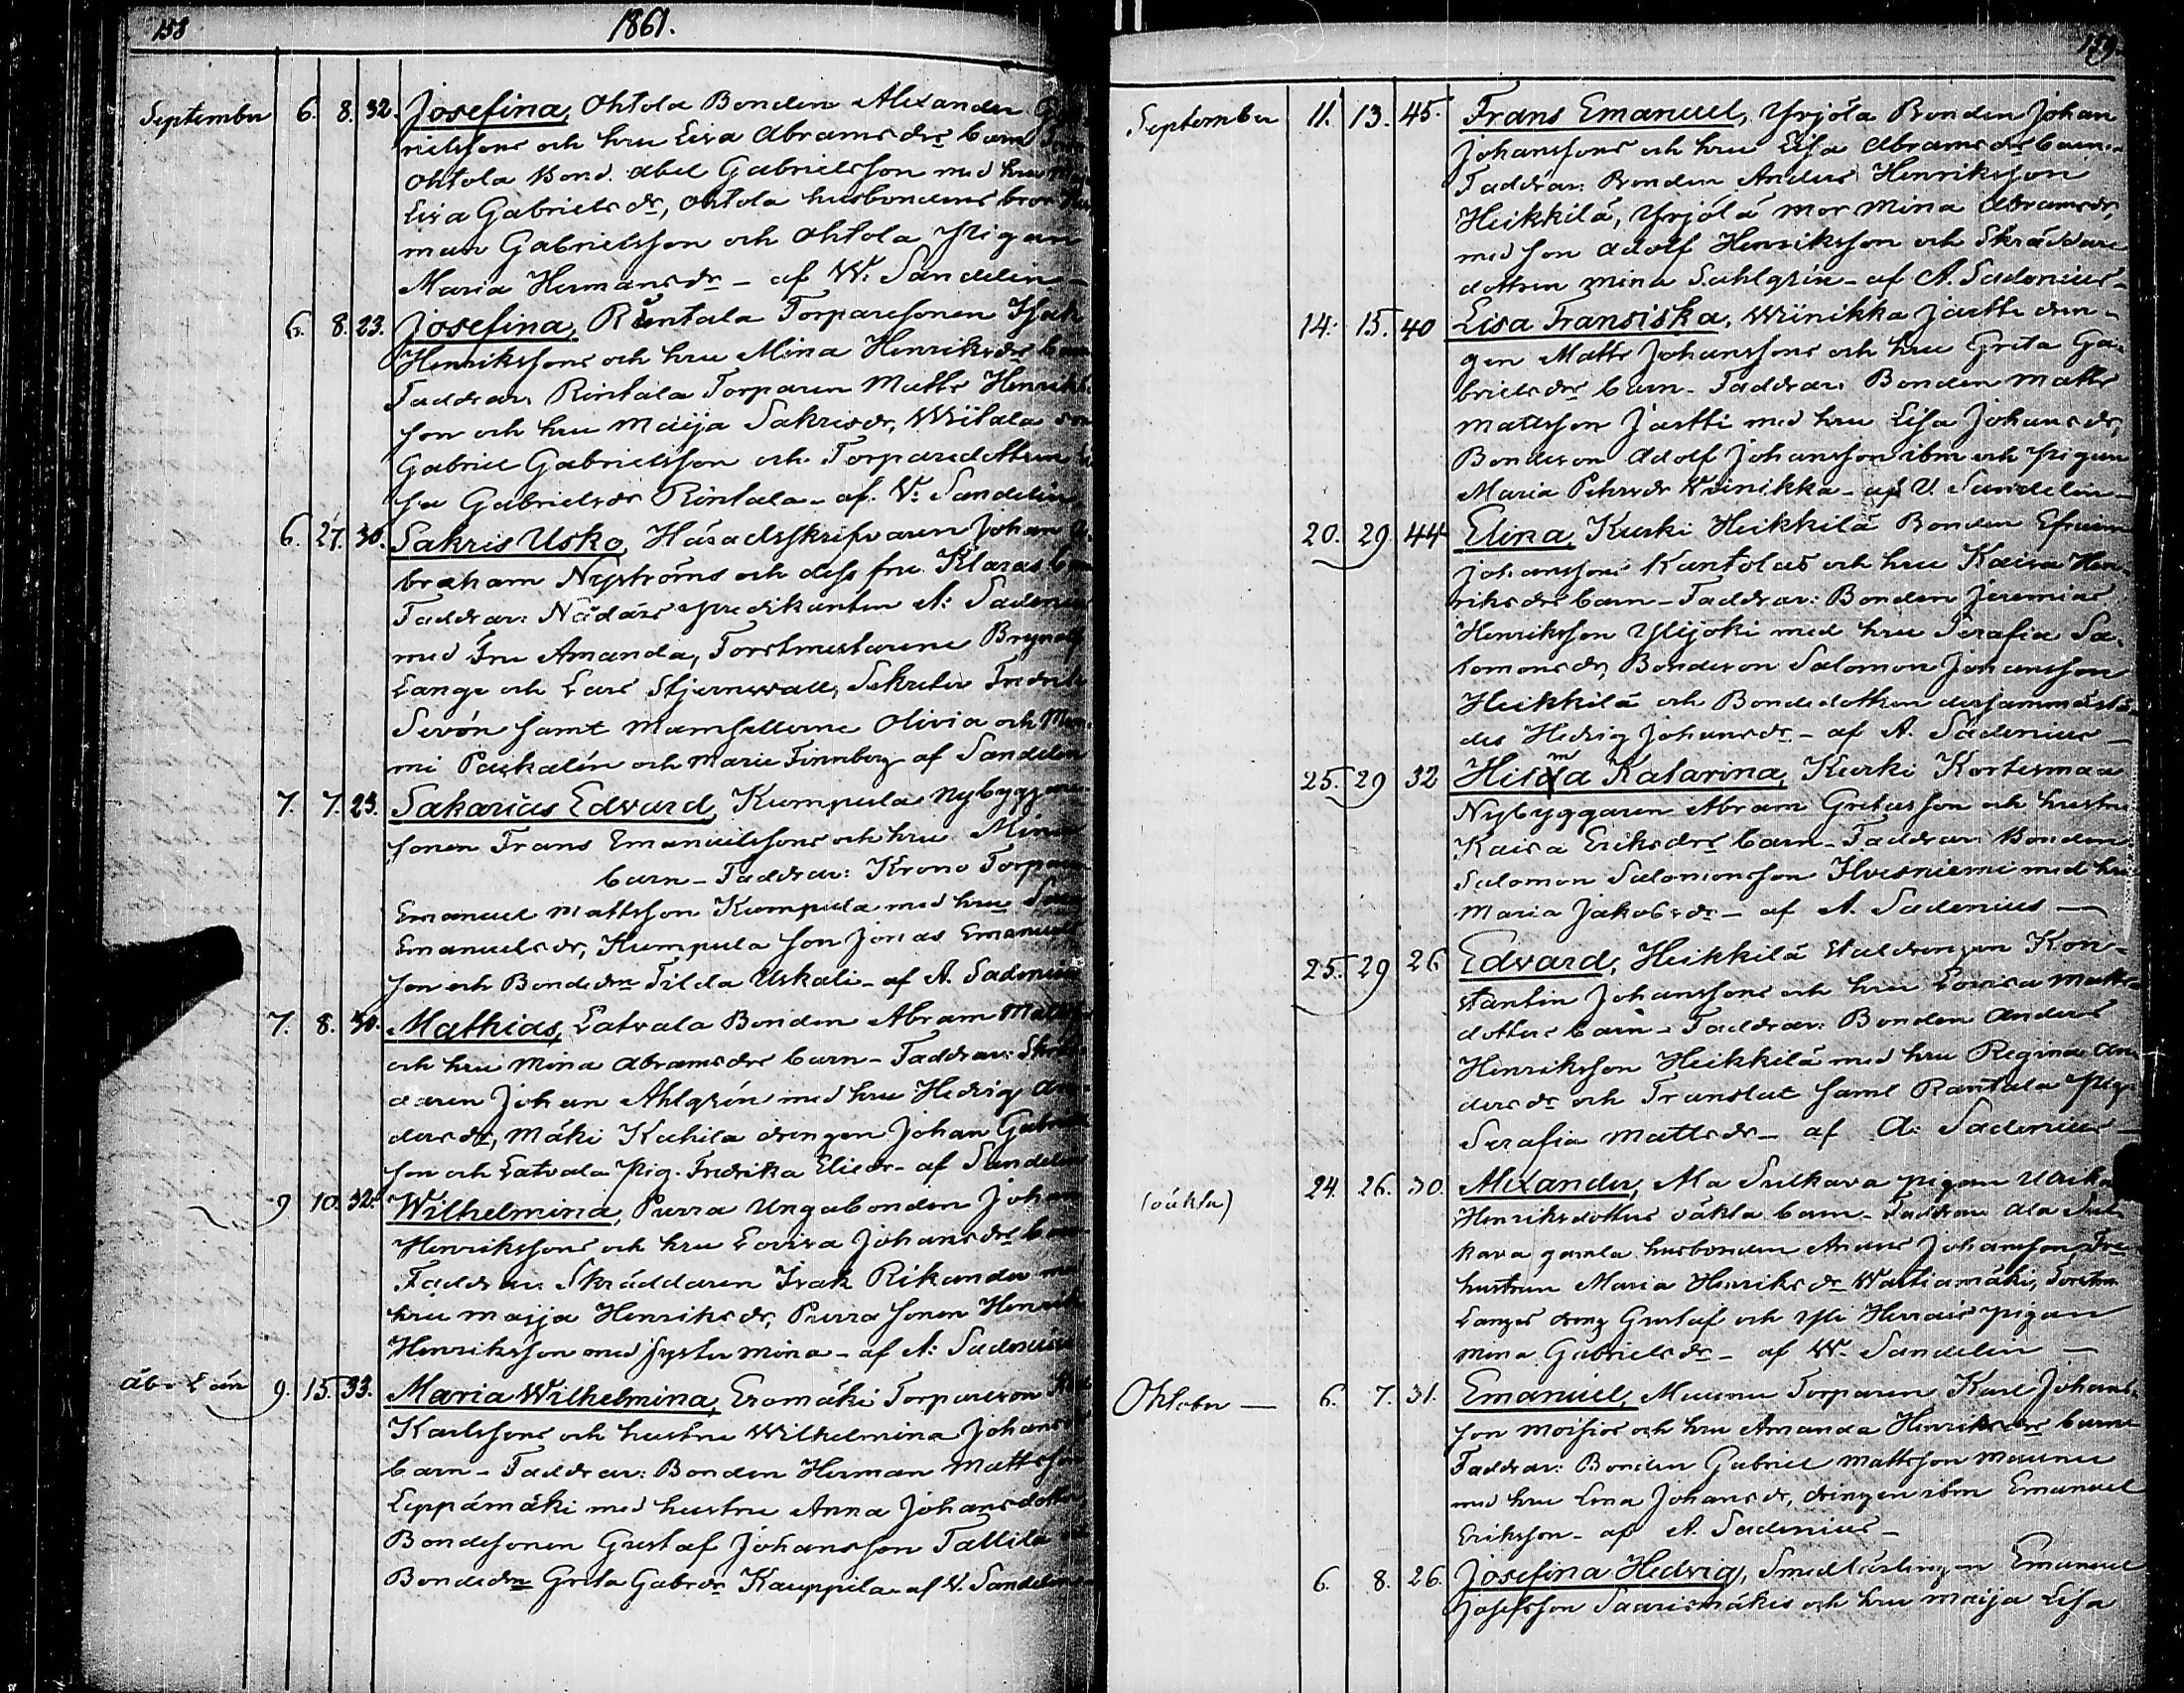 158
1861.
September 6. 8. 32. Josefina, Ohtola Bonden Alexander
rielssons och hru Lisa Abramsdrs barn
Ohtola Bond. Abel Gabrielsson med hru
Lisa Gabrielsdr, Ohtola husbondens bror
man Gabrielsson och Ohtola Pigan
Maria Hermansdr – af W. Sandelin –
6. 8. 23. Josefina, Rintala Torparesonen Isak
Henrikssons och hru Mina Henriksdrs
Faddrar: Rintala Torparen Matts Henriks
son och hru Maija Sakrisdr, Wiitala son
Gabriel Gabrielsson och Torparedottren
sa Gabrielsdr Rintala – af V. Sandelin
6. 27. 30. Sakris Usko, Häradsskrifvaren Johan A.
braham Nyströms och dess fru Klaras
Faddrar: Nådårs Predikanten A: Sadenius
med Fru Amanda, Forstmestarene Brynolf
Lange och Lars Stjernvall, Sekreter Fredrik
Sevón samt Mamsellerne Olivia och
mi Paqvalén och Marie Finnberg af Sandelin
7. 7. 23. Sakarias Edvard, Kumpula Nybyggare
sonen Frans Emanuelssons och hru Mina
barn – Faddrar: Krono Torparen
Emanuel Mattsson Kumpula med hru
Emanuelsdr, Kumpula son Jonas Emanuels
son och Bondedrn Tilda Uskali – af A. Sadenius
7. 8. 30. Mathias, Latvala Bonden Abram Matts
och hru Mina Abramsdrs barn – Faddrar: Skräd
daren Johan Ahlgrén med hru Hedvig An
dersdr, Mäki Kahila drengen Johan Gabriels
son och Latvala Pig. Fredrika Eliedr – af Sandelin
9 10. 32. Wilhelmina, Purra Ungabonden Johan
Henrikssons och hru Lovisa Johansdrs
Faddrar: Skräddaren Isak Rikander
hru Maija Henriksdr, Purra sonen Henrik
Henriksson med syster Mina – af A: Sadenius
Åbo Län 9. 15. 33. Maria Wilhelmina, Eromäki Torpareson
Karlssons och hustru Wilhelmina Johans
barn – Faddrar: Bonden Herman Mattsson
Leppämäki med hustru Anna Johansdotter
Bondesonen Gustaf Johansson Tallila
Bondedrn Greta Gabrdr Kauppila – af V. Sandelin
159.
September 11. 13. 45. Frans Emanuel, Yrjölä Bonden Johan
Johanssons och hru Lisa Abramsdrs barn –
Faddrar: Bonden Anders Henriksson
Heikkilä, Yrjölä mor Mina Abramsdr,
med son Adolf Henriksson och Skräddare
dottren Mina Sahlgrén – af A. Sadenius –
14. 15. 40 Lisa Fransiska, Wiinikka Jästti dren-
gen Matts Johanssons och hru Greta Ga-
brielsdrs barn – Faddrar: Bonden Matts
Mattsson Jästti med hru Lisa Johansdr,
Bondeson Adolf Johansson ibm och pigan
Maria Petersdr Wiinikka – af V. Sandelin –
20. 29 44 Elina, Kurki Heikkilä Bonden Efraim
Johanssons Kantolas och hru Kaisa Hen-
riksdrs barn – Faddrar: Bonden Jeremias
Henriksson Ylijoki med hru Serafia Sa-
lomonsdr, Bondeson Salomon Johansson
Heikkilä och Bondedottren dersammastä-
des Hedvig Johansdr – af A. Sadenius –
25. 29 32 Hilma Katarina, Kurki Kortesmaa
Nybyggaren Abram Gretasson och hustru
Kaisa Eriksdrs barn – Faddrar: Bonden
Salomon Salomonsson Ilvesniemi med hru
Maria Jakobsdr – af A. Sadenius –
25. 29 26 Edvard, Heikkilä Staldrengen Kon-
stantin Johanssons och hru Lovisa Matts-
dotters barn – Faddrar: Bonden Anders
Henriksson Heikkilä med hru Regina An-
dersdr och Translat samt Rantala Pig.
Serafia Mattsdr – af A. Sadenius –
(oäkta) 24. 26. 30. Alexander, Ala Sulkava pigan Ulrika
Henriksdotters oäkta barn – Faddrar: Ala Sul-
kava gamla husbonden Anders Johansson
hustrun Maria Henriksdr Wastiamäki, Forstm.
Langes dreng Gustaf och Yli Herrais pigan
Mina Gabrielsdr – af W. Sandelin –
Oktober – 6. 7. 31. Emanuel, Maunu Torparen Karl Johans-
son Moisios och hru Amanda Henriksdrs barn
Faddrar: Bonden Gabriel Mattsson Maunu
med hru Lena Johansdr, drengen ibm Emanuel
Eriksson – af A. Sadenius –
6. 8. 26. Josefina Hedvig, Smedlärlingen Emanuel
Josefsson Saarimäkis och hru Maija Lisa